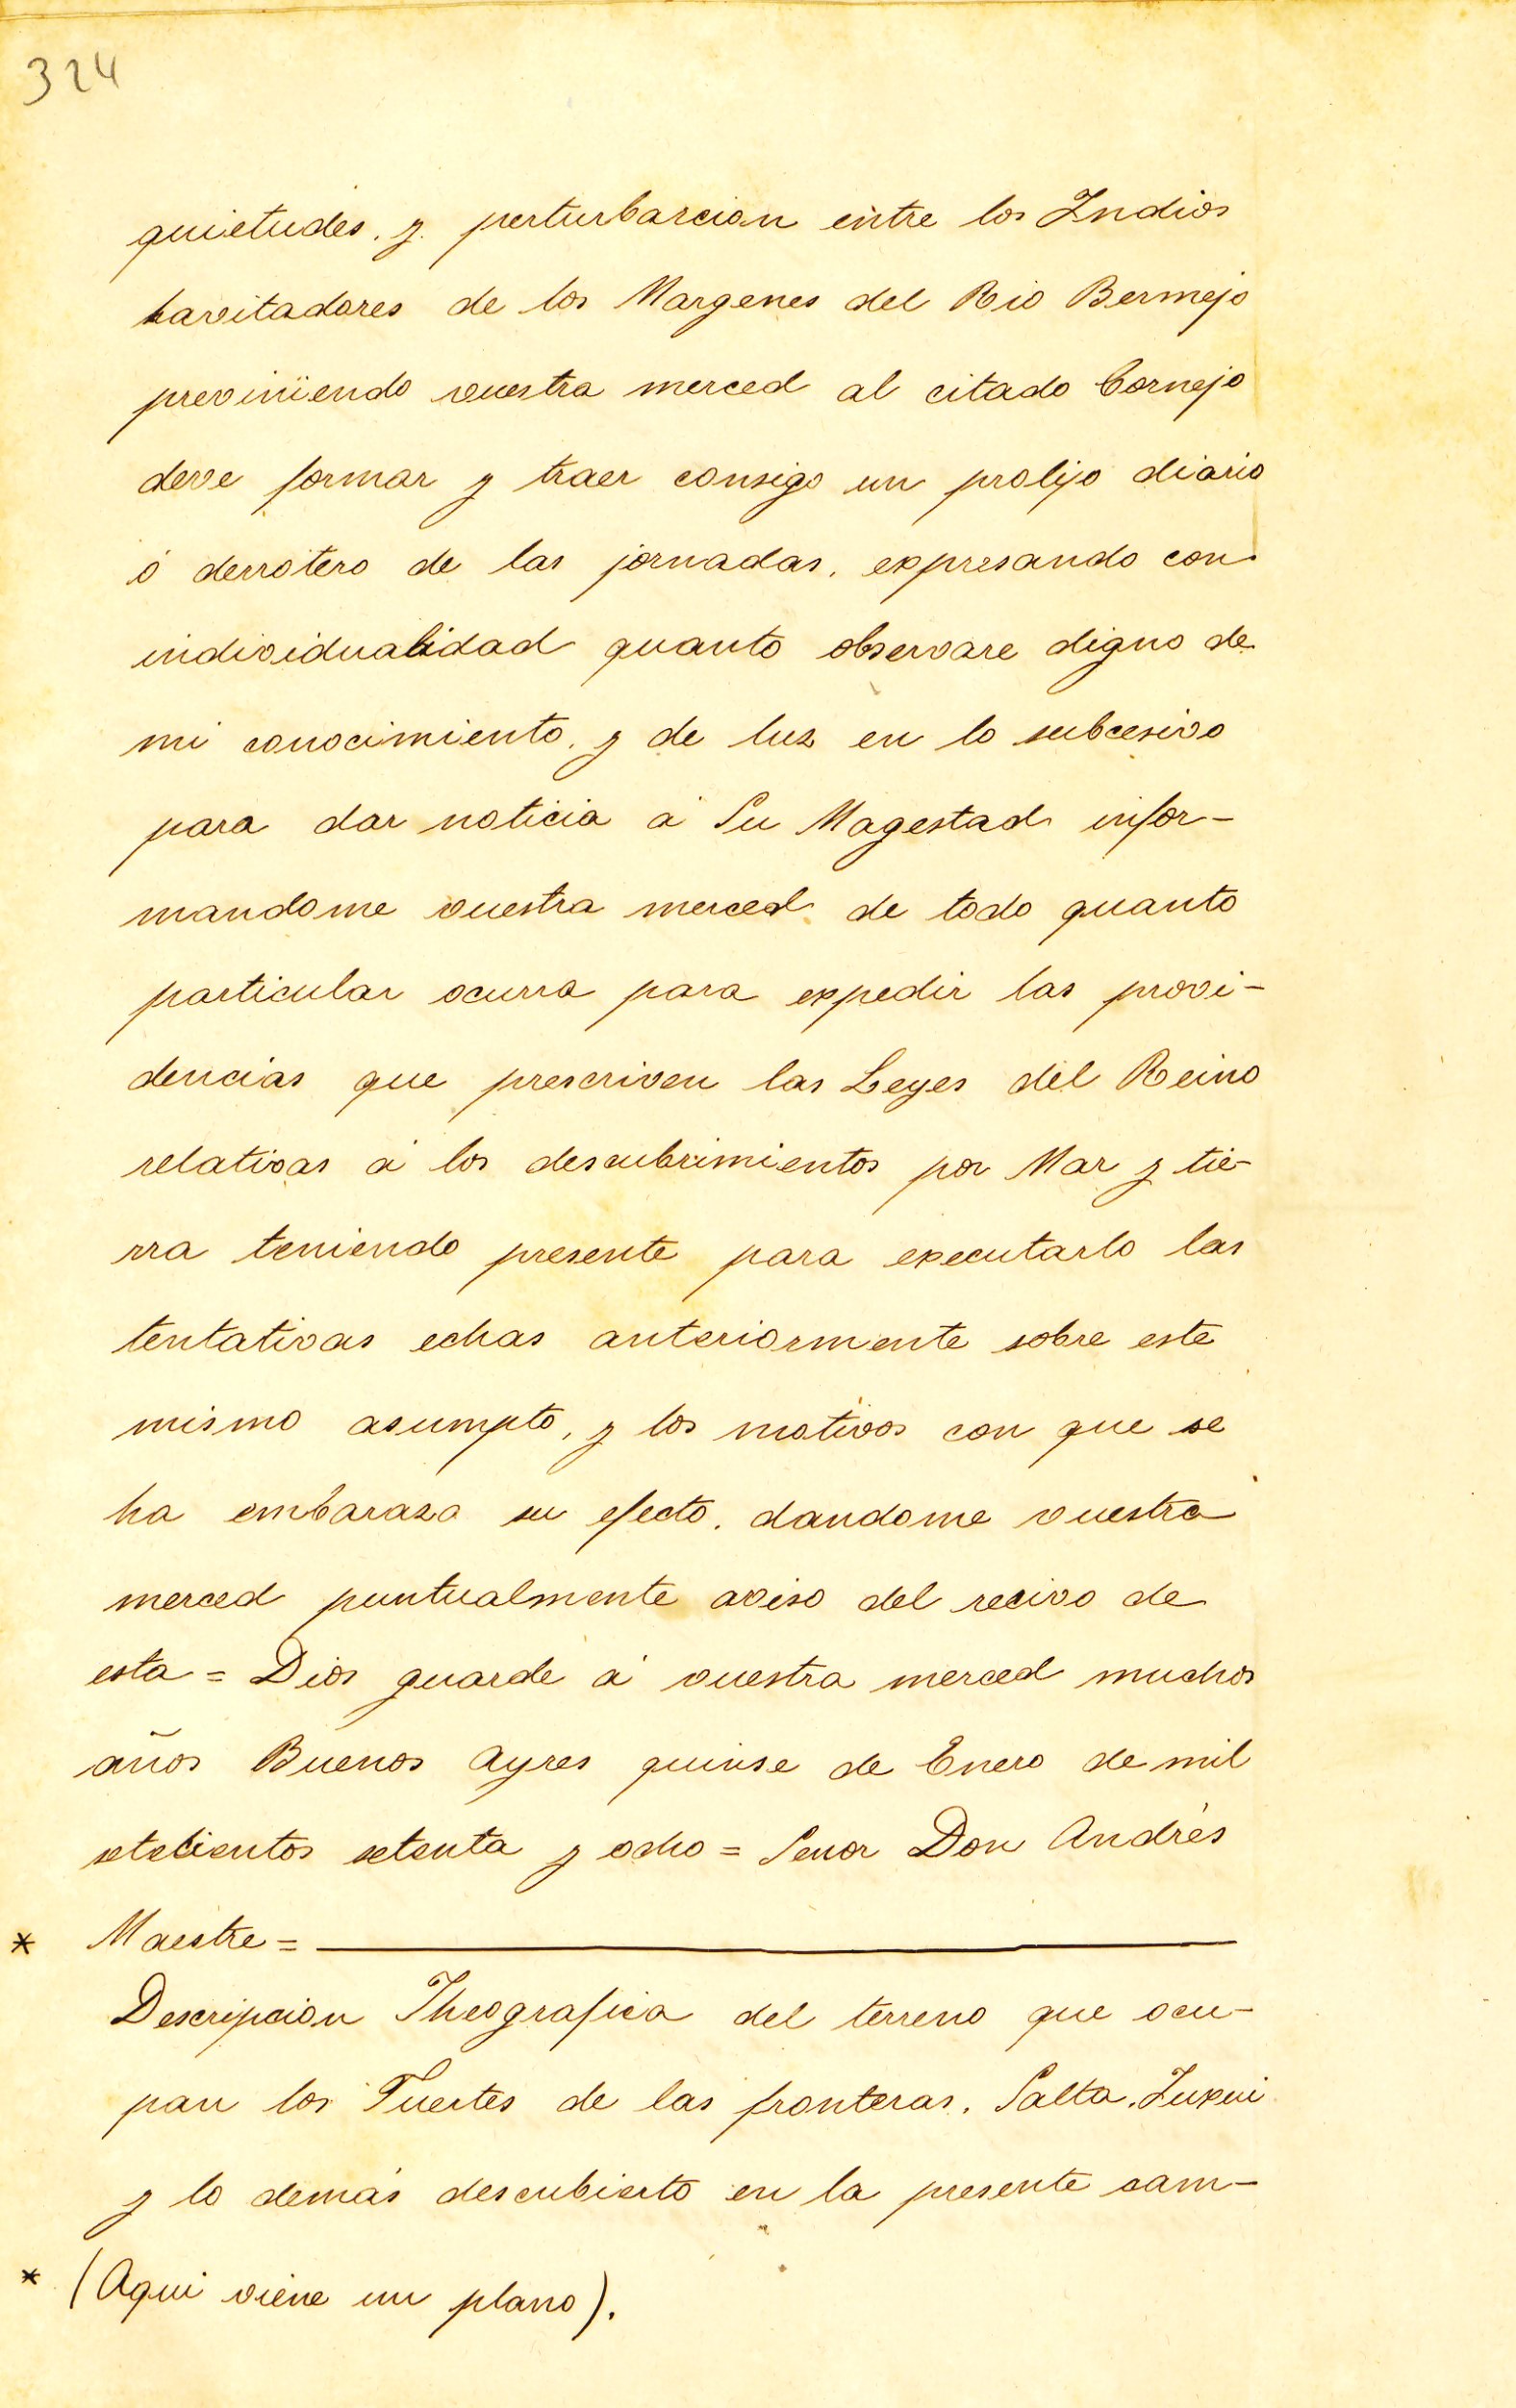 324
quietudes, y perturbarcion entre los Indios
havitadores de los Margenes del Rio Bermejo
previniendo vuestra merced al citado Cornejo
deve formar y traer consigo un prolijo diario
ó derrotero de las jornadas, expresando con
individualidad quanto observare digno de
mi conocimiento, y de luz en lo subcesivo
para dar noticia á Su Magestad infor-
mandome vuestra merced de todo quanto
particular ocurra para expedir las provi-
dencias que prescriven las Leyes del Reino
relativas á los descubrimientos por Mar y tie-
rra teniendo presente para executarlo las
tentativas echas anteriormente sobre este
mismo asumpto, y los motivos con que se
ha embaraza su efecto, dandome vuestra
merced puntualmente aviso del recivo de
esta = Dios guarde á vuestra merced muchos
años Buenos Ayres quinse de Enero de mil
setecientos setenta y ocho = Senor Don Andrés
* Maestre =
Descripcion Theografica del terreno que ocu-
pan los Fuertes de las fronteras, Salta, Juxui
y lo demás descubierto en la presente cam-
* (Aqui viene un plano).